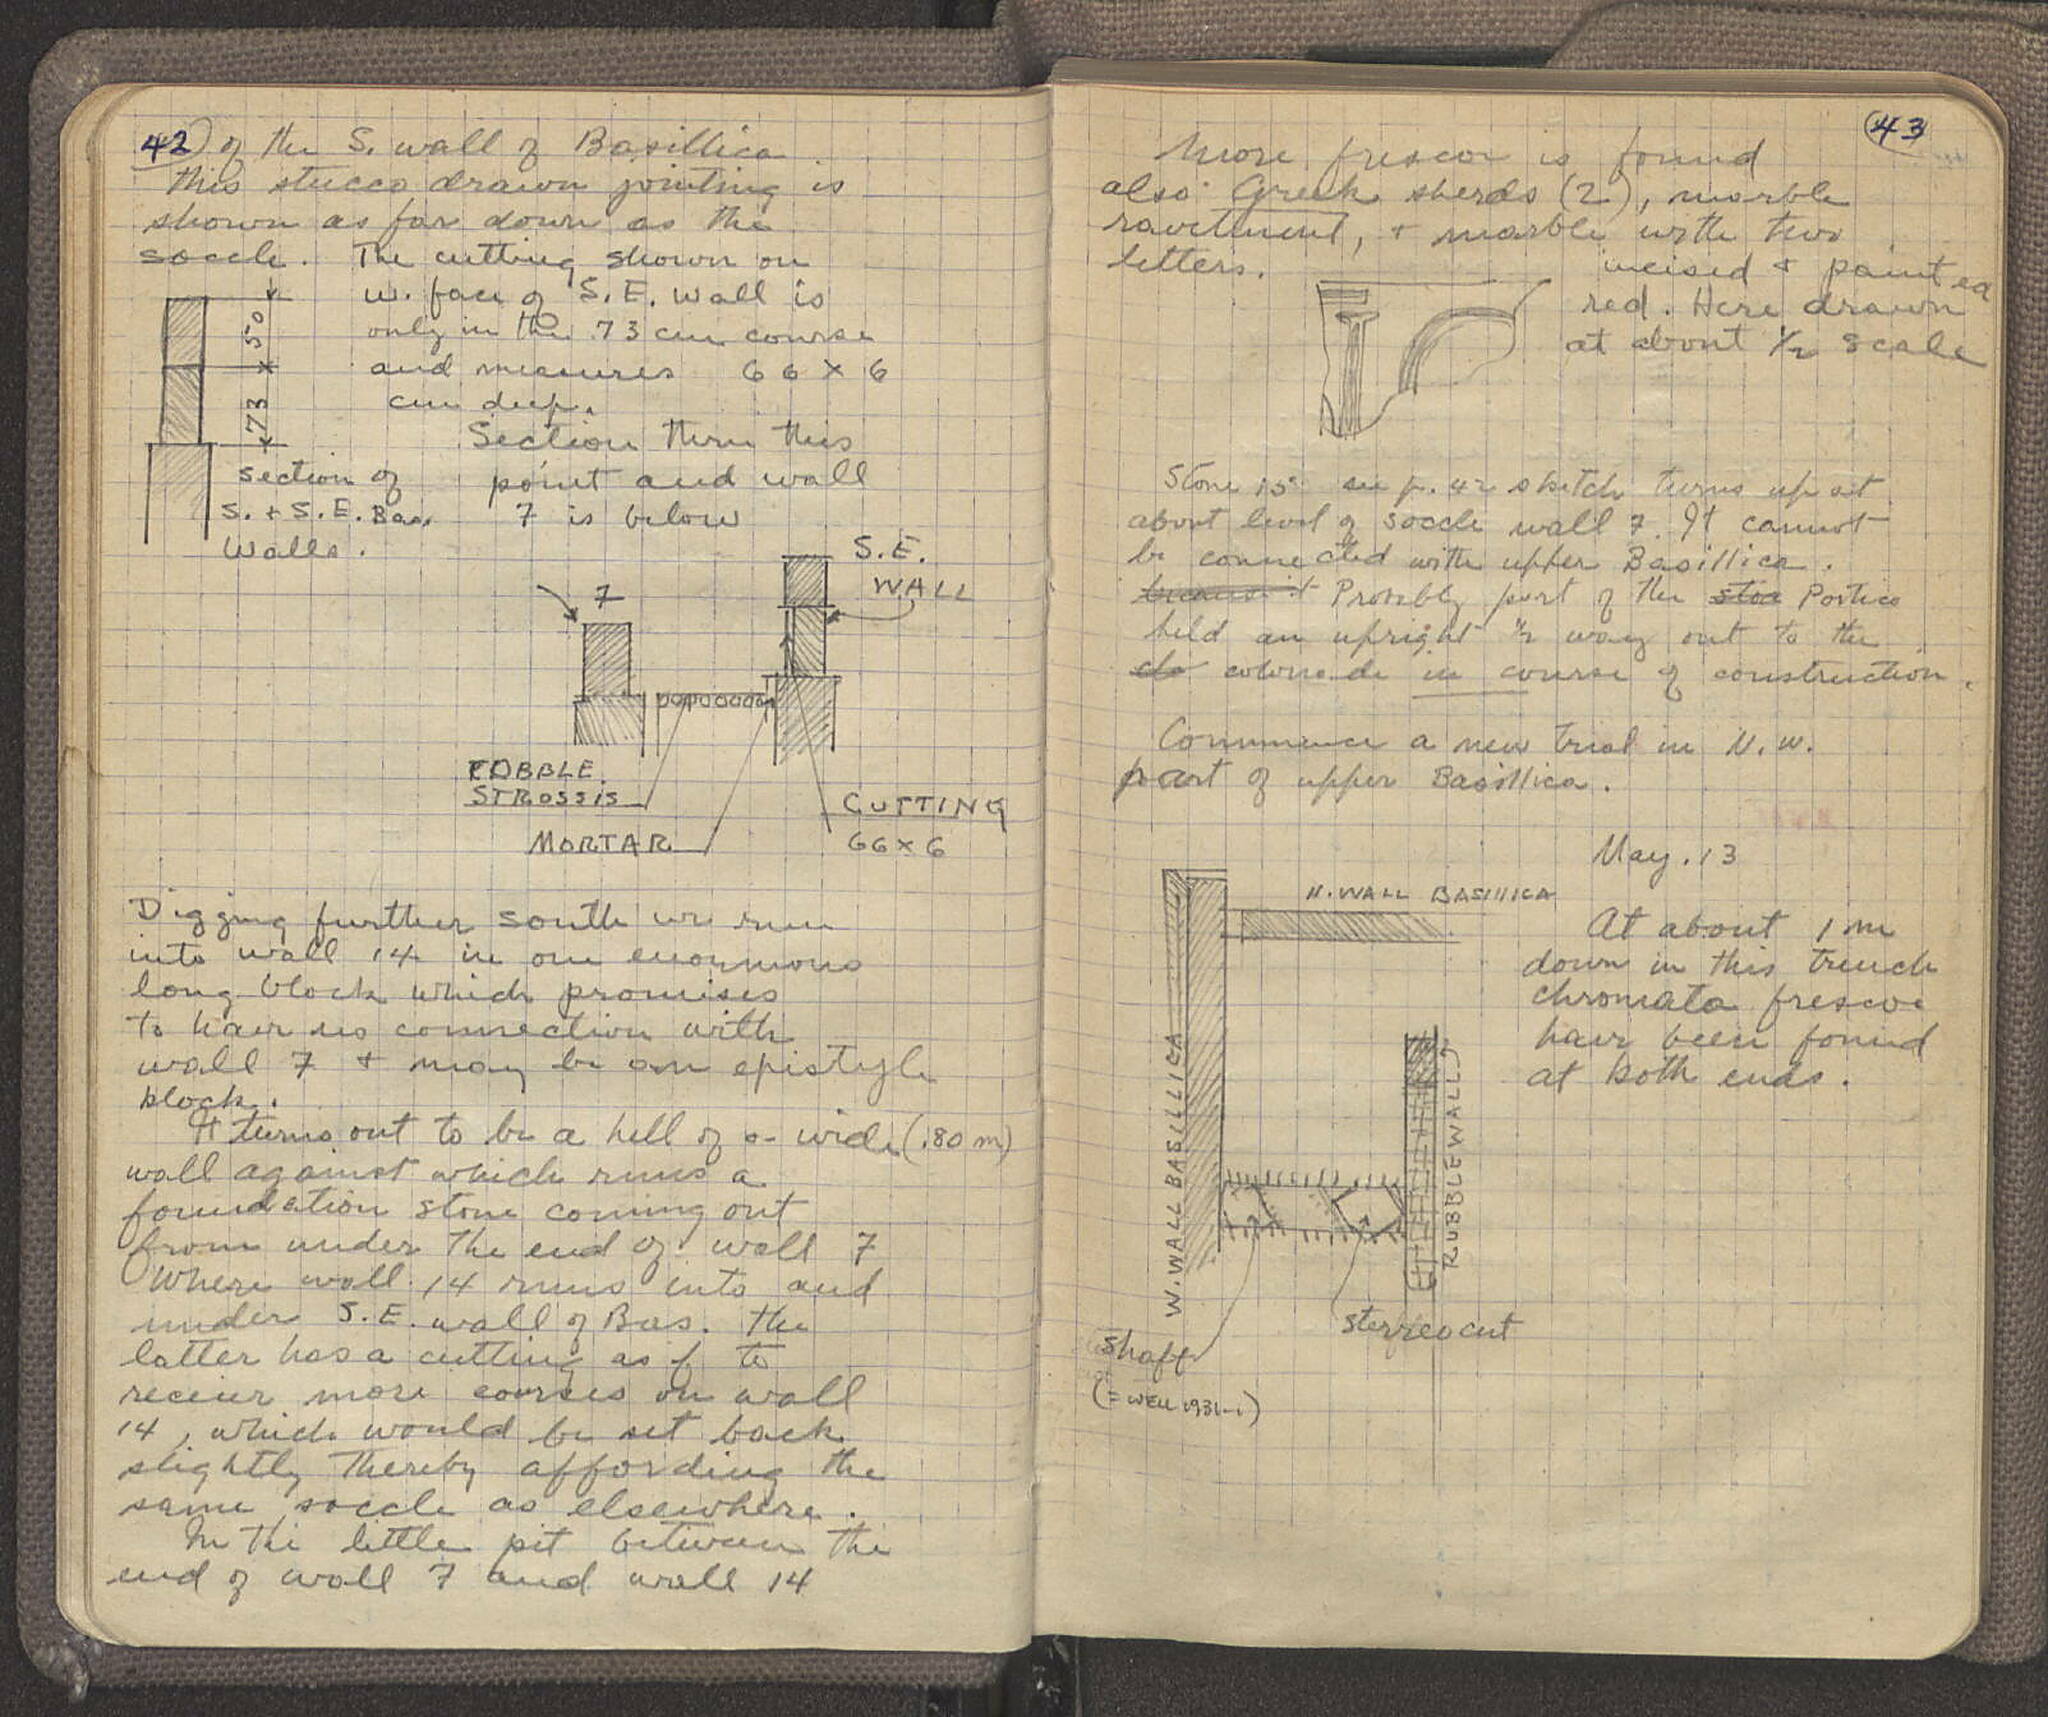 42) of the S. wall of Basillica.
This stucco drawn jointing is
shown as far down as the
soccle. The cutting shown on
w. face of S.E. wall is
only in the .73 cm course
and measures 66 x 6
cm deep.
Section thru this
point and wall
7 is below
50
73
section of
S. + S.E. Bas.
Walls.
S.E.
WALL
7
COBBLE
STROSSIS
MORTAR
CUTTING
66 x 6
Digging further south we run
into wall 14 in one enormous
long block which promises
to have no connection with
wall 7 + may be an epistyle
block.
It turns out to be a hell of a wide (.80 m)
wall against which runs a
foundation stone coming out
from under the end of wall 7
Where wall 14 runs into and
under S.E. wall of Bas. the
latter has a cutting as if to
receive more courses on wall
14, which would be set back
slightly thereby affording the
same soccle as elsewhere.
In the little pit between the
end of wall 7 and wall 14
43
More fresco is found
also Greek sherds (2), marble
ravetment, + marble with two
letters.
incised + painted
red. Here drawn
at about 1/2 scale
Stone 15 see p. 42 sketch turns up at
about level of soccle wall 7. It cannot
be connected with upper Basillica.
because it Probably part of the stoa Portico
held an upright 1/2 way out to the
clo colonade in course of construction.
Commence a new trial in N.W.
part of upper Basillica.
May. 13
N. WALL BASILLICA
At about 1 m
down in this trench
chromata fresco
have been found
at both ends.
W. WALL BASILLICA
RUBBLE WALL
sterreo cut
shaft
(= WELL 1931-1)